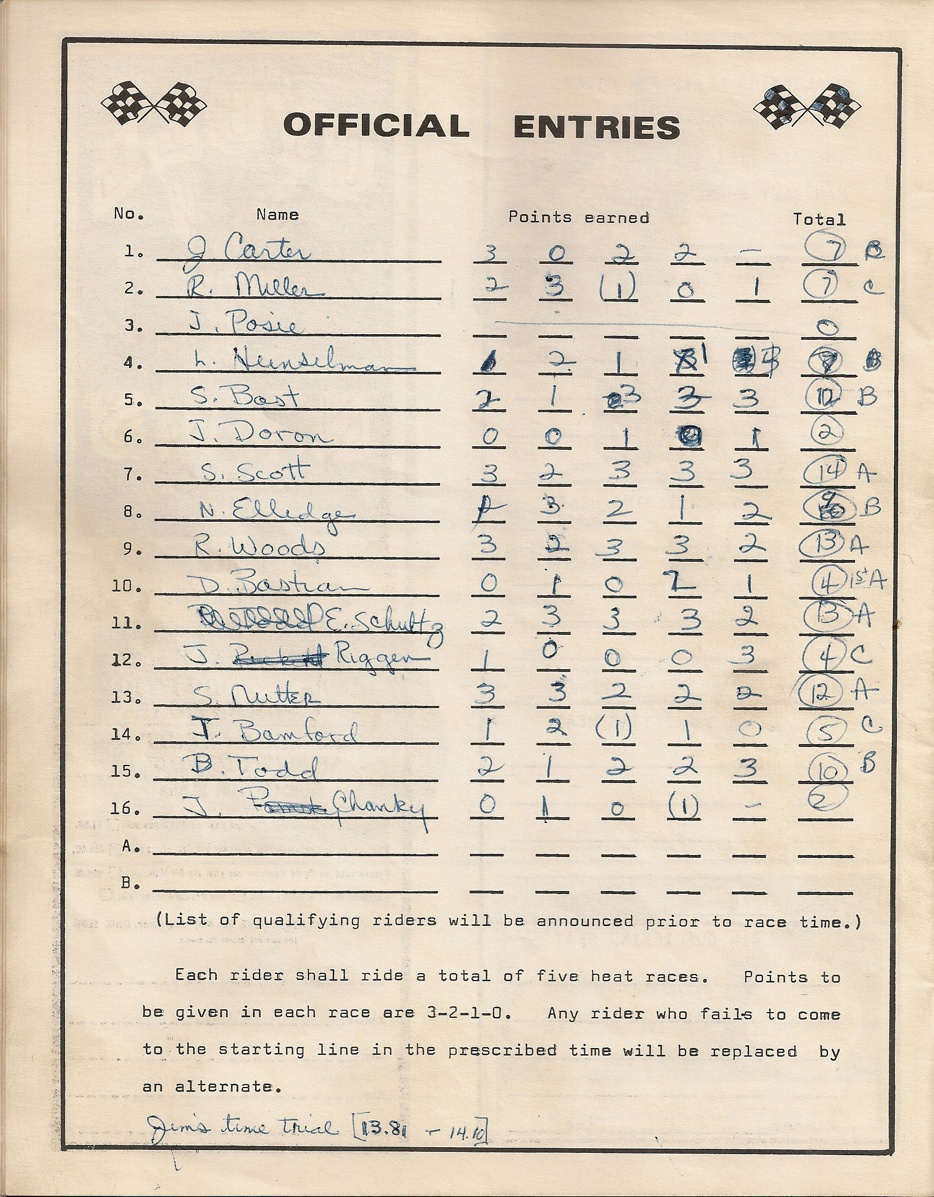 OFFICIAL ENTRIES
No. Name Points earned Total
1. J Carter 3 0 2 2 – 7 B
2. R. Miller 2 3 (1) 0 1 7 C
3. J. Posie 0
4. L. Heinselman 2 1 1 B
5. S. Bast 2 1 3 3 3 12 B
6. J. Doron 0 0 1 0 1 2
7. S. Scott 3 2 3 3 3 14 A
8. N. Elledge 3 2 1 2 9 B
9. R. Woods 3 2 3 3 2 13 A
10. D. Bastian 0 1 0 2 1 4 1st A
11. E. Schultz 2 3 3 3 2 13 A
12. J. Riggen 1 0 0 0 3 4 C
13. S. Nutter 3 3 2 2 2 12 A
14. J. Bamford 1 2 (1) 1 0 5 C
15. B. Todd 2 1 2 2 3 10 B
16. J. Chanky 0 1 0 (1) – 2
A.
B.
(List of qualifying riders will be announced prior to race time.)
Each rider shall ride a total of five heat races. Points to
be given in each race are 3-2-1-0. Any rider who fails to come
to the starting line in the prescribed time will be replaced by
an alternate.
Jim's time trial [13.81 – 14.10]